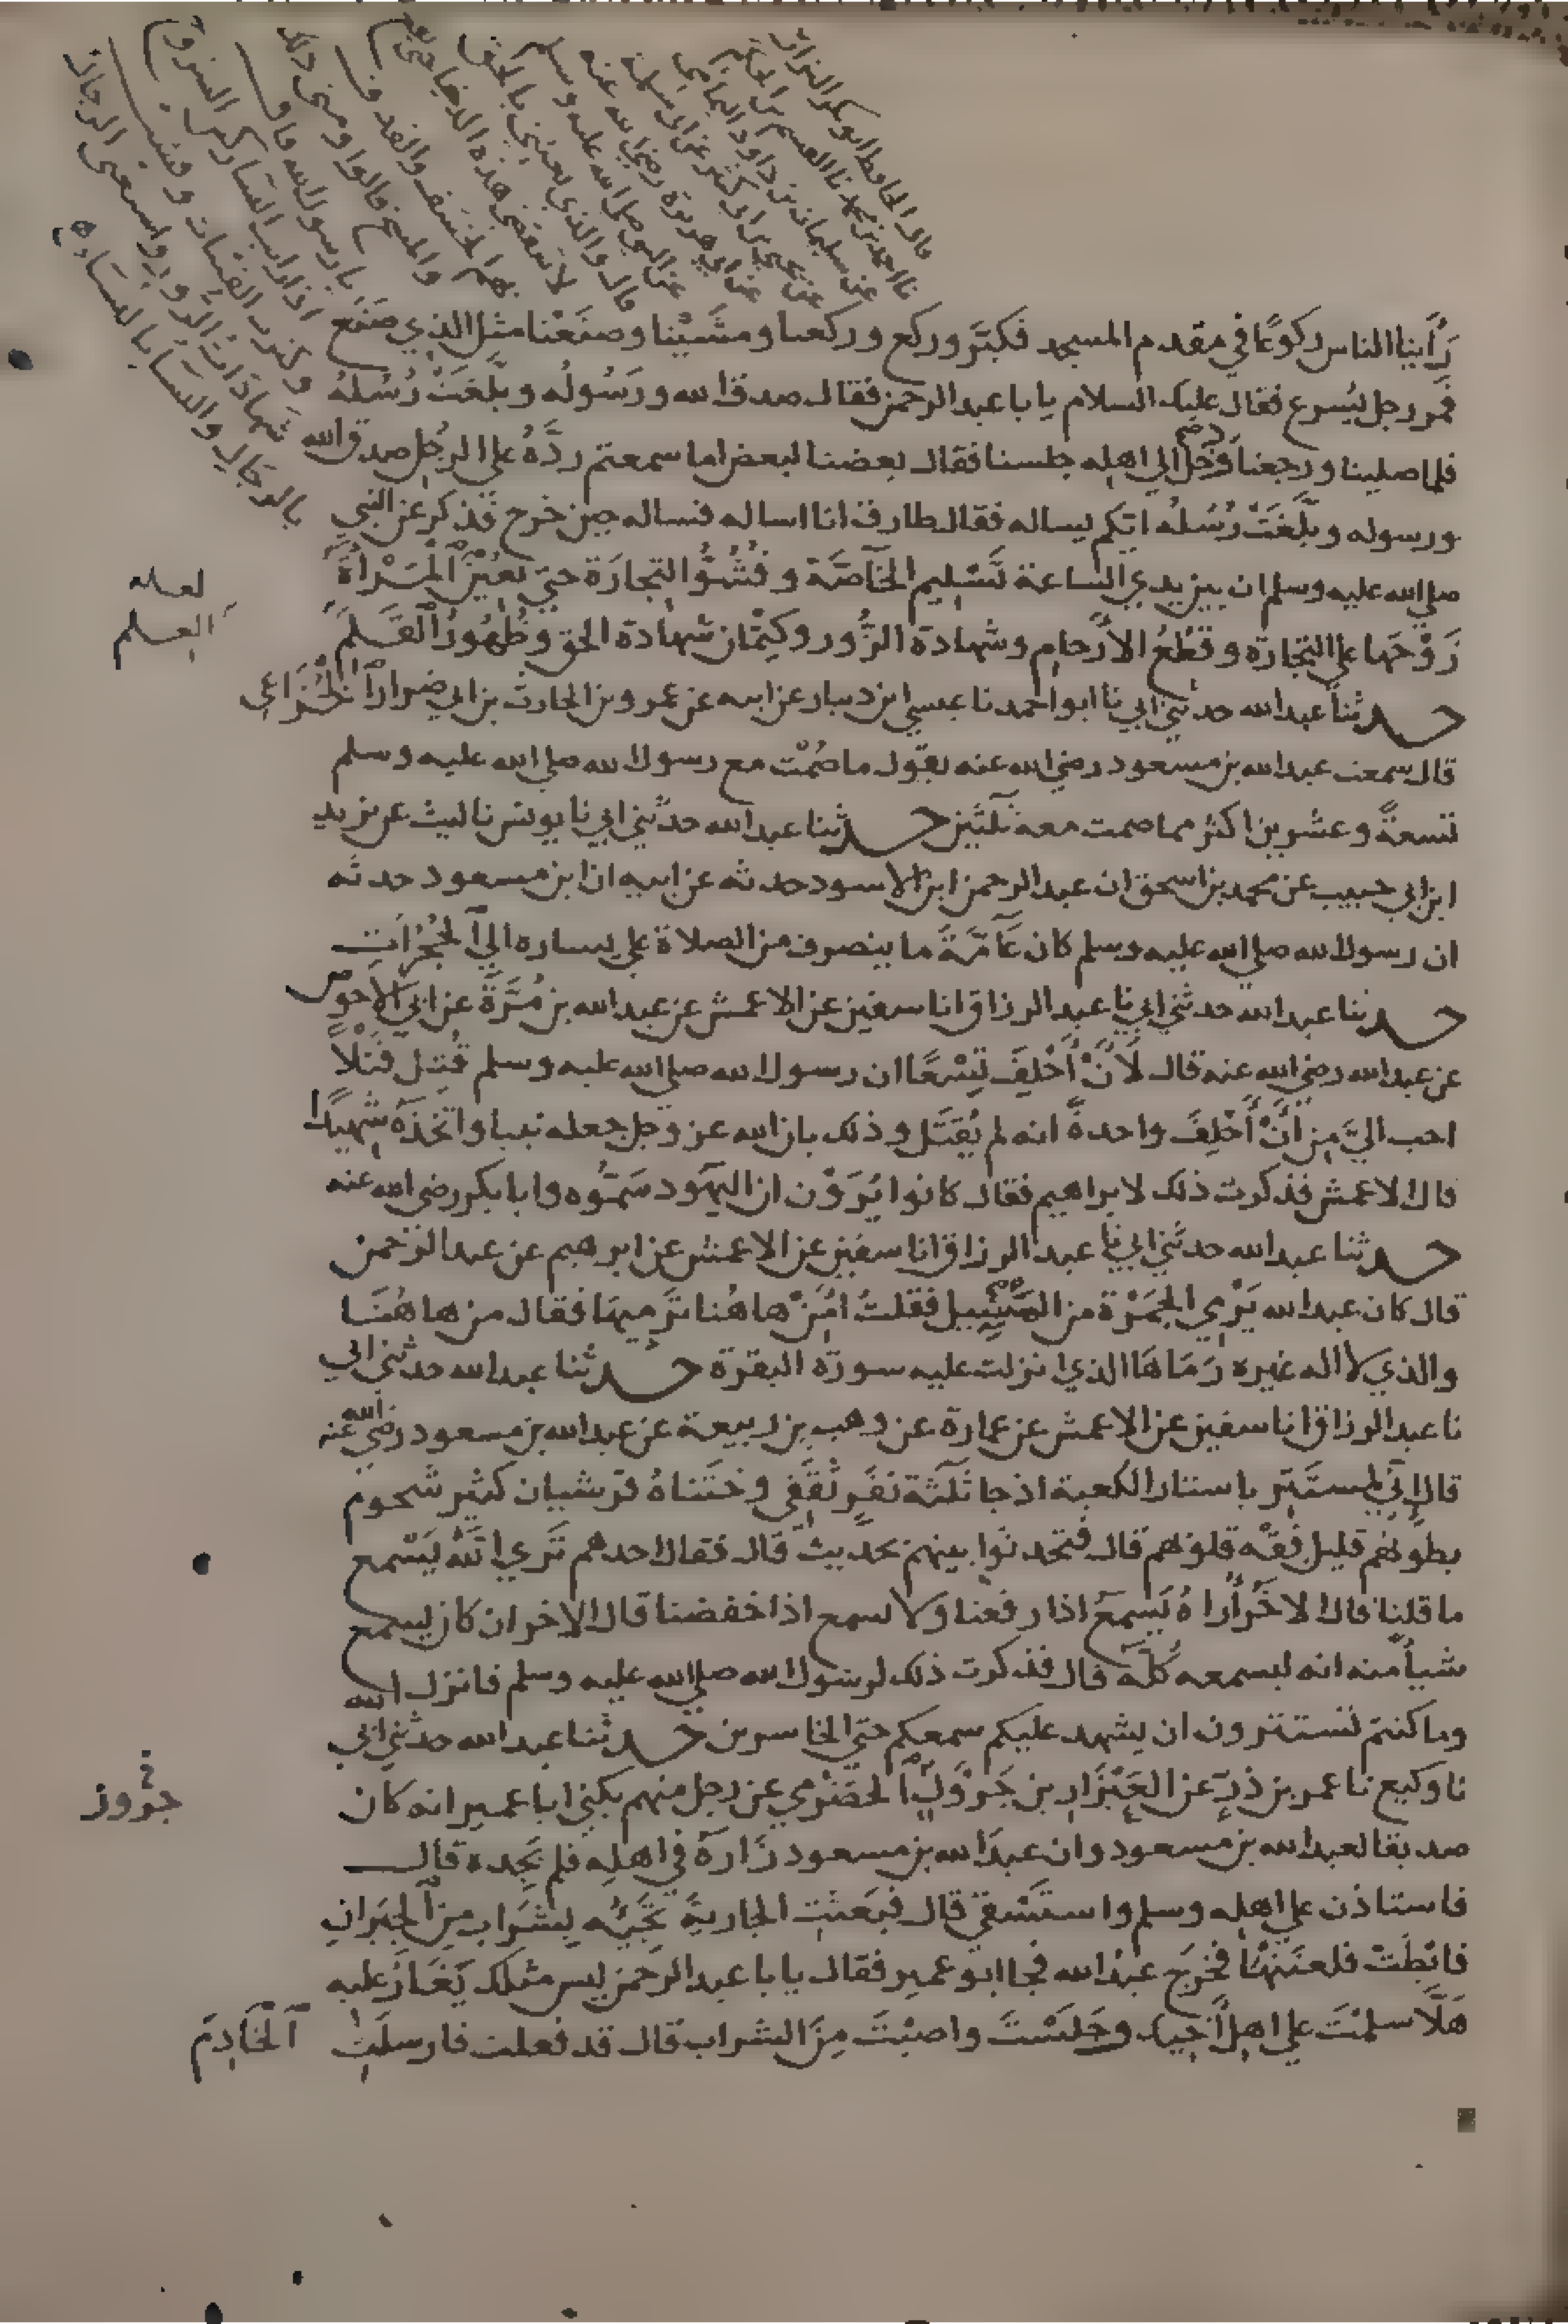 قال الحافظ ابو بكر البزار
نا احمد بن محمد نا القسم بن الحكم
عن سليمان بن داود اليمامي
عن يحيى بن ابي كثير عن ابي سلمة
عن ابي هريرة رضي الله عنه
عن النبي صلى الله عليه وسلم
قال والذي بعثني بالحق
لا تنقضي هذه الدنيا حتى يقع
بهم الخسف والقذف
والمسخ قالوا ومتى ذلك
يا رسول الله قال
اذا رايت النساء ركبن السروج
وكثرت القينات وفشت
شهادات الزور واستغنى الرجال
بالرجال والنساء بالنساء
رَأينا الناس ركوعًا في مقدم المسجد فكبَّر وركع وركعنا ومشَيْنا وصنَعْنا مثل الذي صَنَع
فمر رجل يُسرع فقال عليك السلام يا با عبد الرحمن فقال صدق الله ورَسُولُه وبلَّغَتْ رُسُلهُ
فلما صلينا ورجعنا دخل الي اهله جلسنا فقال بعضنا لبعض اما سمعتم ردَّهُ علي الرجُل صدق الله
ورسوله وبلَّغَتْ رُسُلُه ايكم يساله فقال طارق انا اساله فساله حين خرج فذكر عن النبي
صلي الله عليه وسلم ان بين يدي الساعة تَسْليم الخَاصَّة وفُشُوُّ التجارَة حتى تُعِيْنَ الْمَرْأةُ
زَوْجَها علي التجارة وقَطْعُ الأرْحام وشهادة الزُّور وكِتْمان شهادة الحق وظُهُورُ القَلَم
لعله
العلم
حدثنا عبد الله حدثني ابي نا ابو احمد نا عيسي ابن دينار عن ابيه عن عمرو بن الحارث بن ابي ضرار الخُزَاعي
قال سمعت عبد الله بن مسعود رضي الله عنه يقول ما صُمْت مع رسول الله صلي الله عليه وسلم
تسعةً وعشرين اكثر مما صمت معه ثلثين حدثنا عبد الله حدثني ابي نا يونس نا ليث عن يزيد
ابن ابي حبيب عن محمد بن اسحق ان عبد الرحمن ابن الاسود حدثه عن ابيه ان ابن مسعود حدثه
ان رسول الله صلي الله عليه وسلم كان عَامَّةً ما ينصرف من الصلاة علي يساره الي الحُجُرَاتِ
حدثنا عبد الله حدثني ابي نا عبد الرزاق انا سفين عن الاعمش عن عبد الله بن مُرَّةَ عن ابي الأحوص
عن عبد الله رضي الله عنه قال لَأَنْ أَحْلِفَ تِسْعًا ان رسول الله صلي الله عليه وسلم قُتِلَ قَتْلاً
احب اليَّ مِن أَنْ أَحْلِفَ واحدةً انه لم يُقتَل وذلك بان الله عز وجل جعله نبيا واتخذَهُ شهيدًا
قال الاعمش فذكرت ذلك لابراهيم فقال كانوا يُرَوْن ان اليهود سَمُّوه وابا بكر رضي الله عنه
حدثنا عبد الله حدثني ابي نا عبد الرزاق انا سفين عن الاعمش عن ابرهيم عن عبد الرحمن
قال كان عبد الله يَرْمي الجَمْرَة من المَسِيل فقلتُ امِنْ هاهُنا تَرْميها فقال من هاهُنَا
والذي لا اله غيره رَمَاهَا الذي انزلت عليه سورة البقرة حدثنا عبد الله حدثني ابي
نا عبد الرزاق انا سفين عن الاعمش عن عمارة عن وهب بن ربيعة عن عبد الله بن مسعود رضي الله عنه
قال اِنِّي لمستَتِر باستار الكعبة اذ جا ثَلَثة نفَرٍ ثَقَفي وخَتَناهُ قرشيان كثير شحوم
بطونهم قليل فِقْهُ قلوبهم قال فتحدثوا بينهم بحديث قال فقال احدهم تَري الله يَسْمع
ما قلنا قال الاخَرُ أُرَاهُ يَسمعُ اذا رفعنا ولا يسمع اذا خفضنا قال الاخر ان كان يسمع
شياً منه انه ليسمعه كلَّه قال فذكرت ذلك لرسول الله صلي الله عليه وسلم فانزل الله
وما كنتم تستترون ان يشهد عليكم سمعكم حتي الخاسرين حدثنا عبد الله حدثني ابي
نا وكيع نا عمر بن ذرٍّ عن العَيْزَارِ بن جَرْوَلٍ الحَضْرمي عن رجل منهم يكني ابا عمير انه كان
جرول
صديقا لعبد الله بن مسعود وان عبدَ الله بن مسعود زَارَهُ في اهلِه فلم يَجِده قال
فاستاذن علي اهله وسلم واستَسْقي قال فبَعثتِ الجارية تَجيئه بِشَرَاب مِن الجيَرانِ
فابْطَتْ فلعنَتها فخرَج عبدُ الله فجا ابو عمير فقال يا با عبد الرحمن ليس مثلك يَغَارُ عليه
هَلَّا سلمْتَ علي اهل أخيك وجَلسْتَ واصبْتَ مِنَ الشراب قال قد فعلت فارسلَتِ الخَادِمَ